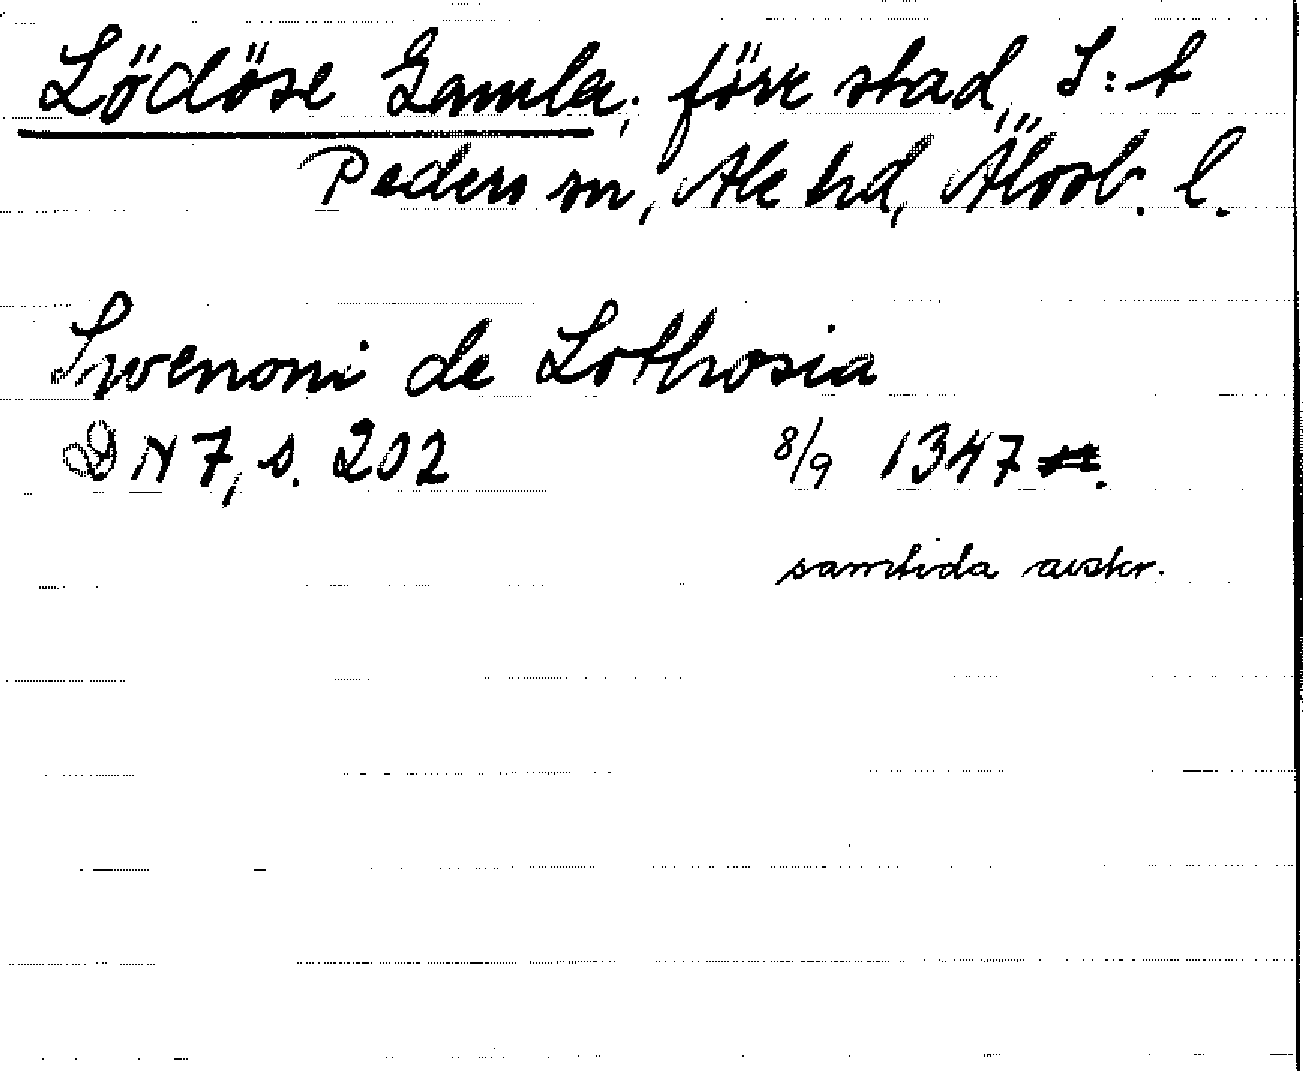 Lödöse Gamla, förr stad, S:t
Peders sn, Ale hd, Älvsb. l.
Swenoni de Lothosia
DN 7, s. 202 8/9 1347
samtida avskr.